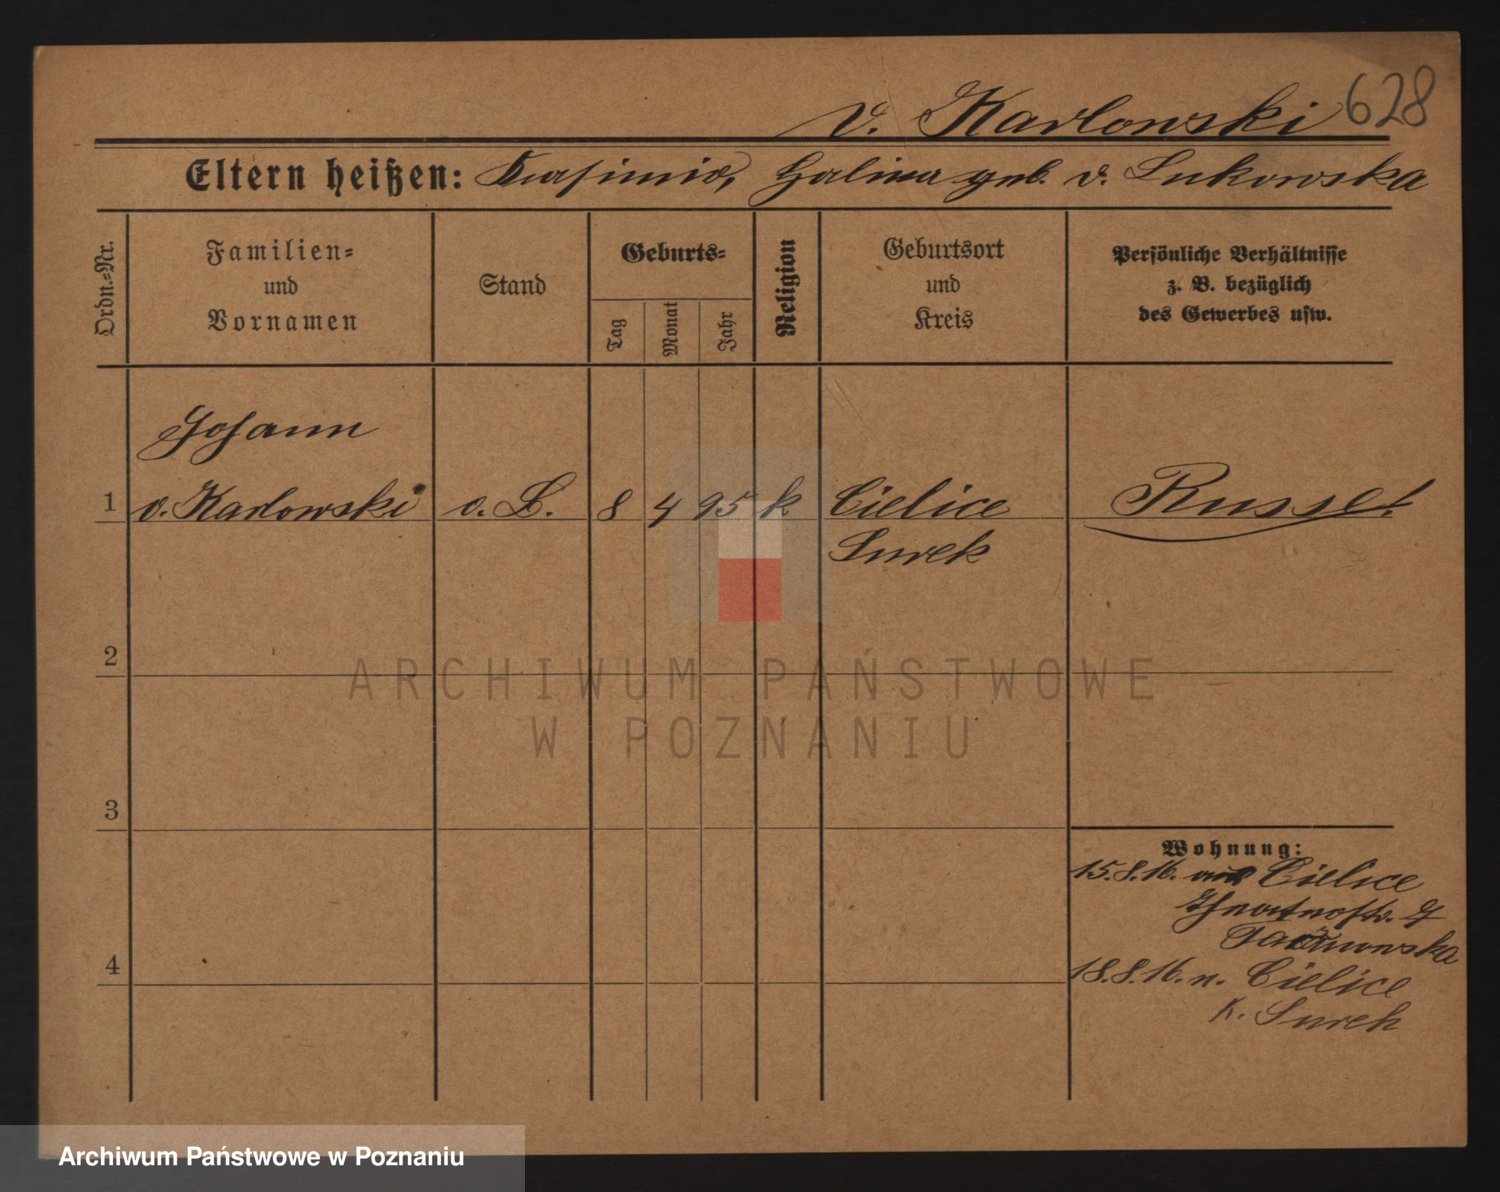 v. Karlowski 628
Eltern heißen: Kasimir, Halina geb. v. Lukowska
Ordn.-Nr.
Familien-
und
Vornamen
Stand
Geburts-
Tag
Monat
Jahr
Religion
Geburtsort
und
Kreis
Persönliche Verhältnisse
z. B. bezüglich
des Gewerbes usw.
Johann
1 v. Karlowski o. B. 8 4 95 k Cielice Russe!
Turek
2
ARCHIWUM PAŃSTWOWE
W POZNANIU
3
Wohnung:
15.8.16. aus Cielice
18.8.16. n. Cielice
4
K. Turek
Archiwum Państwowe w Poznaniu